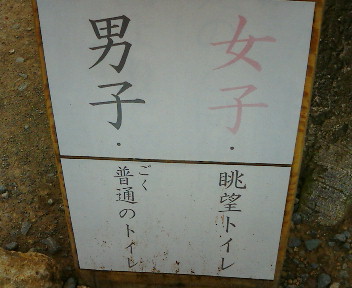 女子・
眺望トイレ
男子・
ごく
普通のトイレ